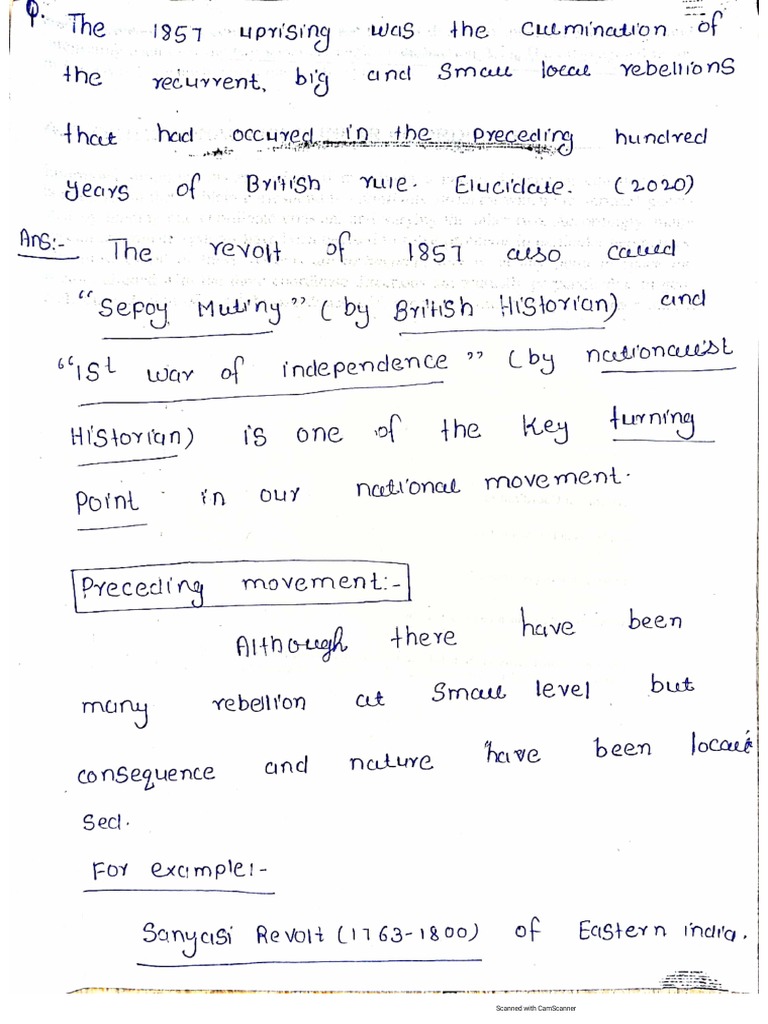 Q. The 1857 uprising was the culmination of
the recurrent, big and small local rebellions
that had occured in the preceding hundred
years of British rule. Elucidate. (2020)
Ans:- The revolt of 1857 also called
"Sepoy Mutiny" (by British Historian) and
"1st war of independence" (by nationalist
Historian) is one of the key turning
Point in our national movement.
Preceding movement:-
Although there have been
many rebellion at small level but
consequence and nature have been locali
sed.
For example:-
Sanyasi Revolt (1763-1800) of Eastern india.
Scanned with CamScanner